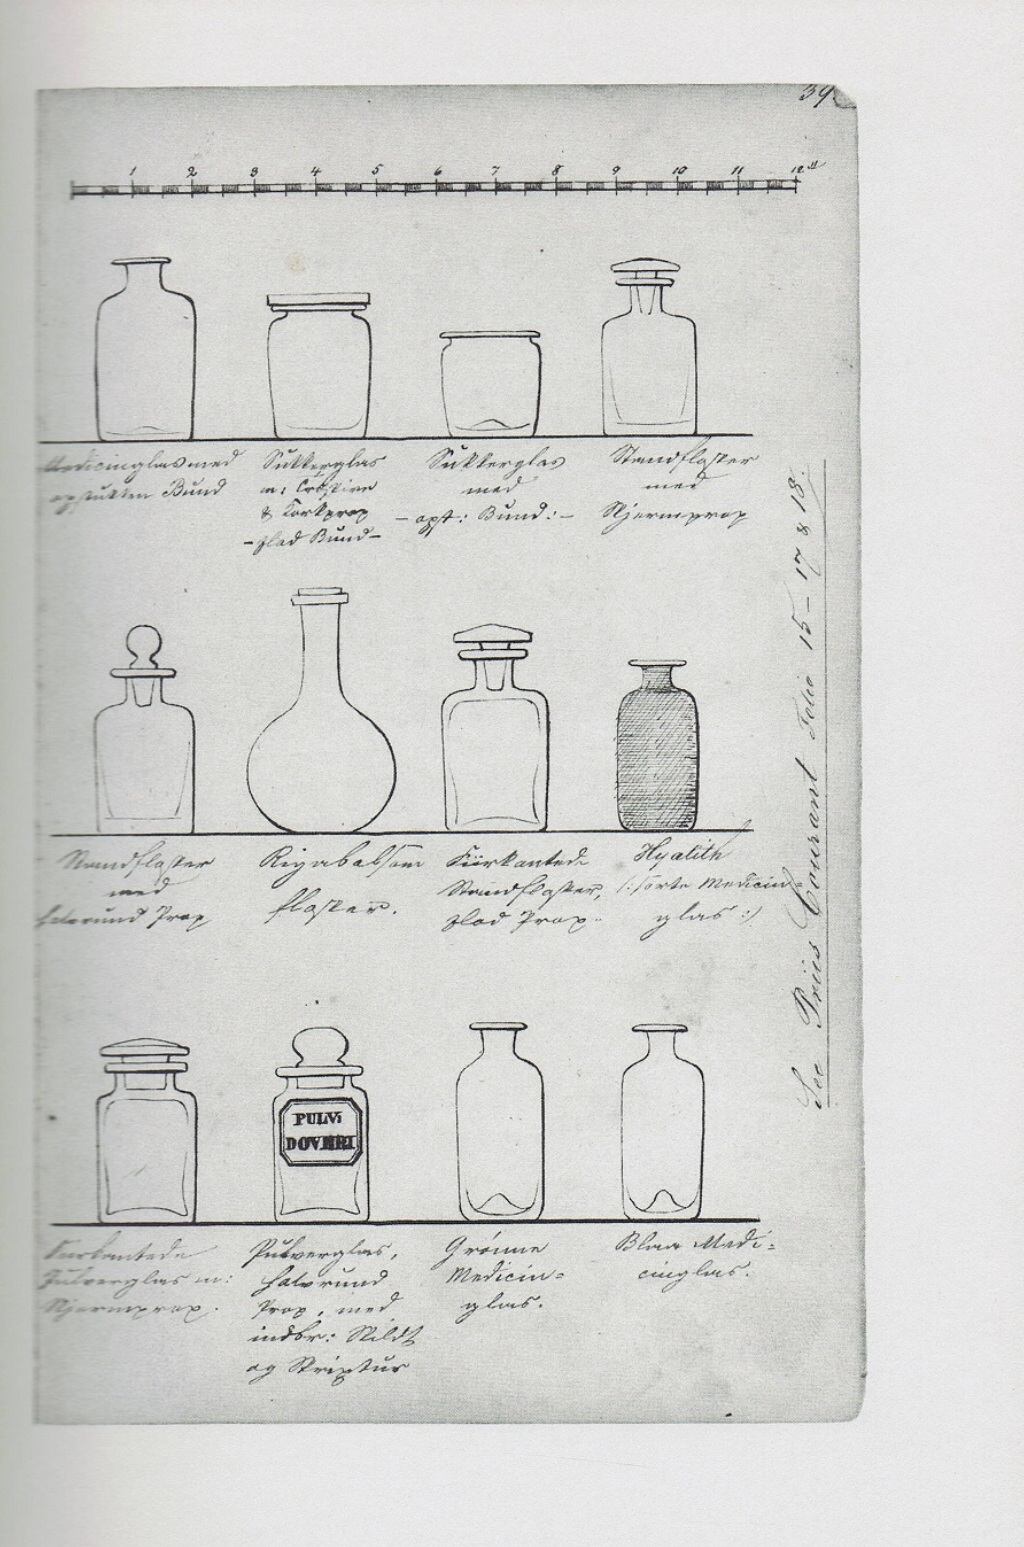 39.
1 2 3 4 5 6 7 8 9 10 11 12"
Medicinglas med
opstukken Bund
Sukkerglas
m:
& Korkprop
- flad Bund -
Sukkerglas
med
- opst: Bund: -
Standflasker
med
Skjermprop
Standflasker
med
halvrund Prop
Rigabalsam
flasker.
Fiirkantede
Standflasker,
flad Prop.
Hyalith
(: sorte Medicin
glas :)
Fiirkantede
Pulverglas m:
Skjermprop.
PULV:
DOVERI
Pulverglas,
halvrund
Prop, med
indbr: Skildt
og Skriptur
Grönne
Medicin=
glas.
Blaa Medi=
cinglas.
See Priis Courant Folio 15 - 17 & 18.